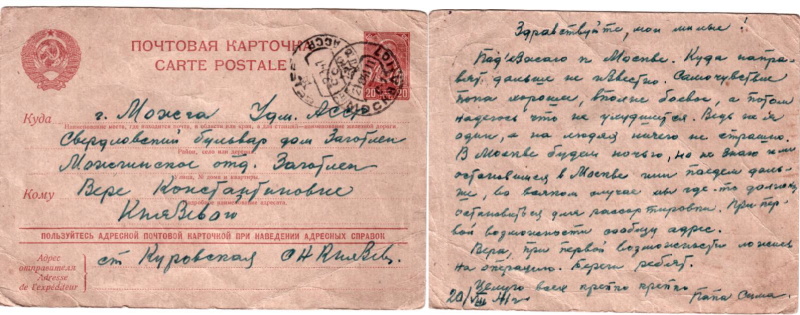 ПОЧТОВАЯ КАРТОЧКА
CARTE POSTALE
20 20
Куда
г. Можга Удм. АССР
Свердловский бульвар дом Заготлен
Можгинское отд. Заготлен
Кому
Вере Константиновне
Князевой
ПОЛЬЗУЙТЕСЬ АДРЕСНОЙ ПОЧТОВОЙ КАРТОЧКОЙ ПРИ НАВЕДЕНИИ АДРЕСНЫХ СПРАВОК
Адрес
отправителя
Adresse
de l'expéditeur
ст Куровская СН Князев
Здравствуйте, мои милые!
Подъезжаю к Москве. Куда направ
вят дальше не известно. Самочувствие
пока хорошее, вполне боевое, а потом
надеюсь что не ухудшится. Ведь не я
один, а на людях ничего не страшно.
В Москве будем ночью, но не знаю или
остановимся в Москве или поедем даль-
ше, во всяком случае мы где-то должны
остановиться для рассортировки. При пер
вой возможности сообщу адрес.
Вера, при первой возможности ложись
на операцию. Береги ребят.
Целую всех крепко крепко
20/VIII 41 г. Папа Сима.